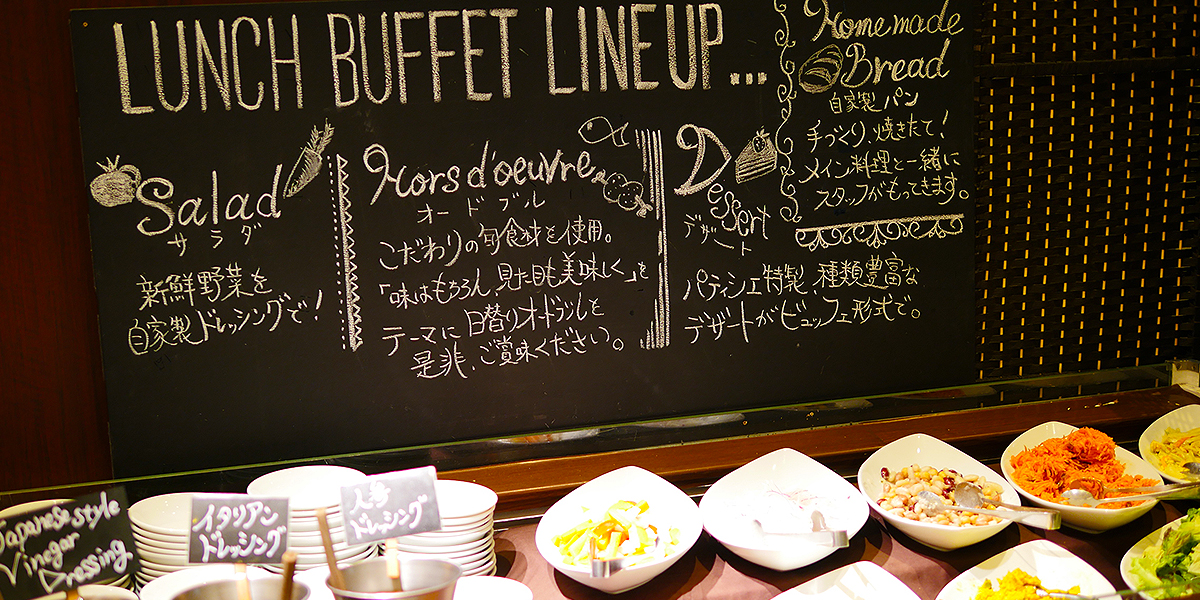 LUNCH BUFFET LINEUP...
Salad
サラダ
新鮮野菜を
自家製ドレッシングで!
Hors d'oeuvre
オードブル
こだわりの旬食材を使用。
「味はもちろん、見た目も美味しく」を
テーマに日替りオードブルを
是非、ご賞味ください。
Dessert
デザート
パティシェ特製、種類豊富な
デザートがビュッフェ形式で。
Homemade
Bread
自家製パン
手づくり、焼きたて!
メイン料理と一緒に
スタッフがもってきます。
Japanese style
Vinegar
Dressing
イタリアン
ドレッシング
人参
ドレッシング